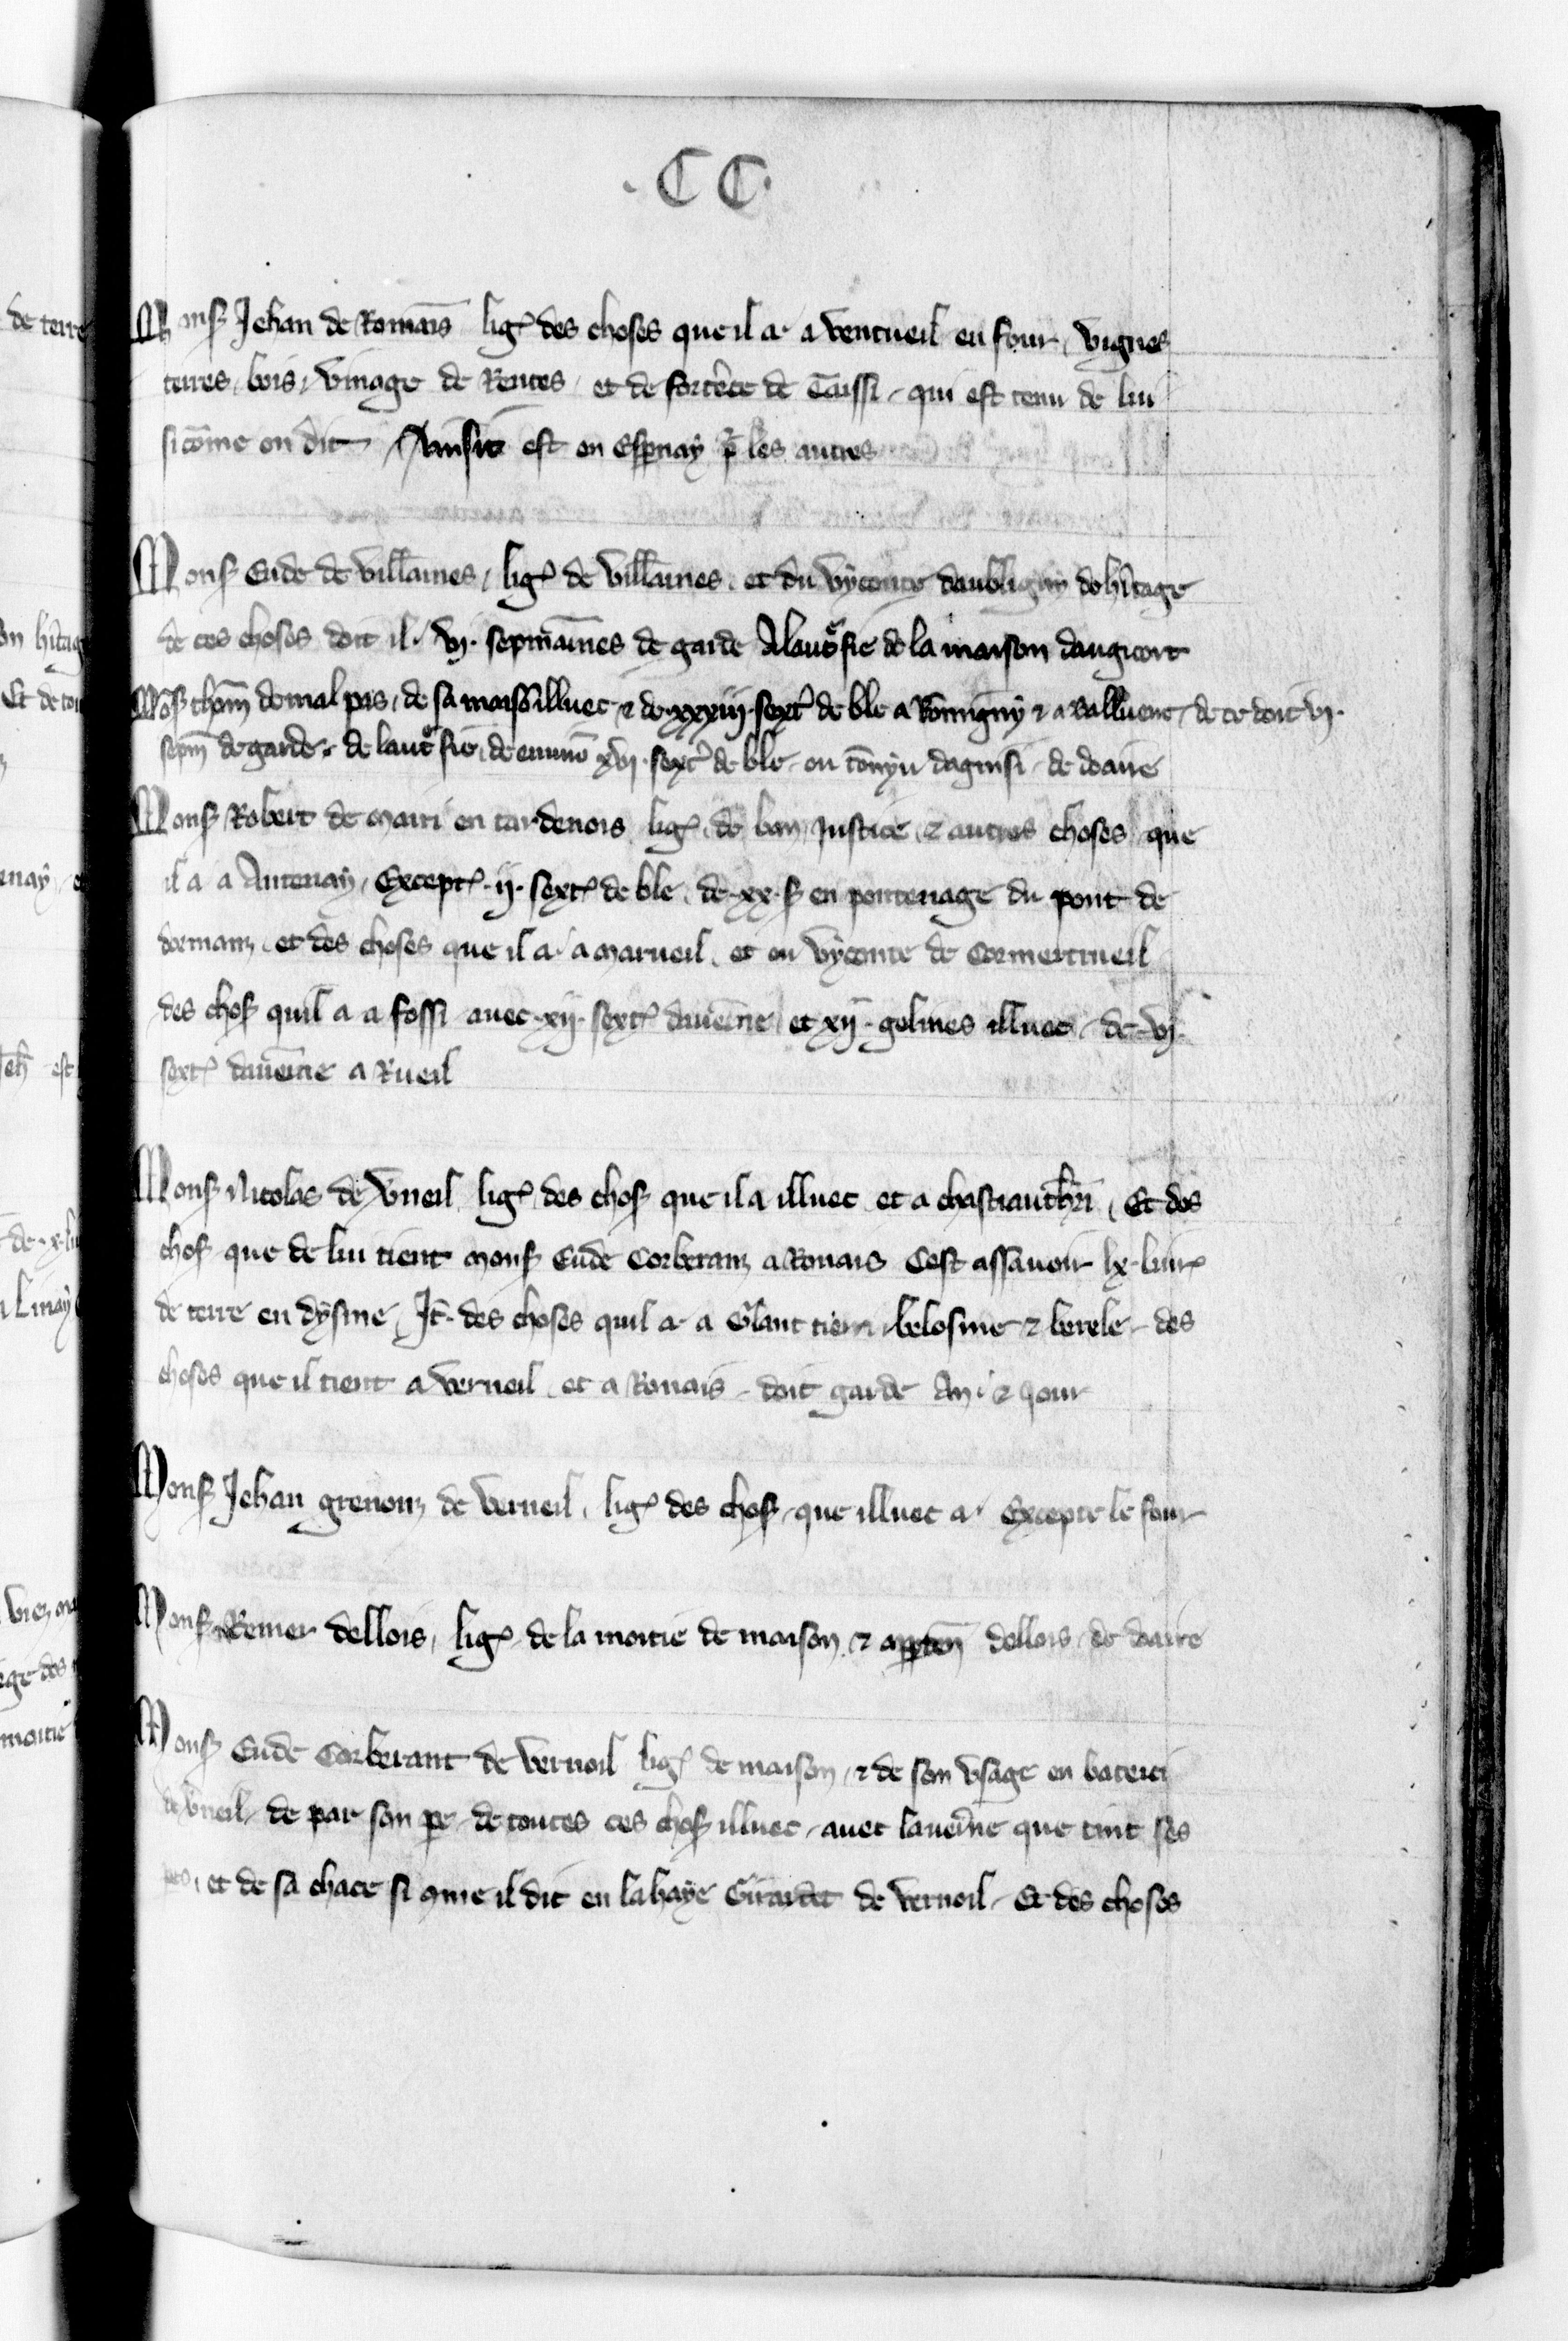 · C C ·
Monsʳ Jehan de Romais̄ ligᵉ des choses que il a a ventueil en four, vignes
terres, bois, vinage de Rentes, et de fort'ece de Taissi, qui est tenu de lui
si cōme on dit Ainsit est en Espnay p̄ les autres
Monsʳ Eude de vill̄aines, ligᵉ de vill̄aines, et du vyconte daubligny de h'itage
de ces choses doit il .vj. sepmaīnes de garde A laut' fie de la maison daugicort
Mōsʳ thom̄ de mal pas, de sa maisō illuec & de xxxiij sextᵉ de ble a Rōmigny & a valluene, de ce doit vj.
sepm̄ de garde, de laut' fie, de xvj. sextᵉ de ble, ou de doaire
Monsʳ Robert de mairi en tardenois ligᵉ, de ban Justice, & autres choses que
il a a Antenay, Exceptᵉ .ij. sextᵉ de ble, de .xx. s en pontenage du pont de
dormanz, et des choses que il a a marueil, et ou vyconte de Cormertrueil
des chosʳ quil a a fossi auec .xij. sextᵉ daueīne, et xij. gelines illuec, de .vj.
sextᵉ daueīne a Rueil
Monsʳ Nicolas de v'neil ligᵉ des chosʳ que il a illuec et a chastiauth'ri, Et des
chosʳ que de lui tient monsʳ Eude Corberanz a Ronais Cest assauoir lx liurᵉ
de terre en dysme, It̄. des choses quil a a G'lant belosme & berele, des
choses que il tient a verneil, et a Ronais, doit garde An, & Jour
Monsʳ Jehan grenonz de verneil, ligᵉ des chosʳ, que illuec a Excepte le four
Monsʳ Remer dellois, ligᵉ de la moitie de maison & apten̄ dellois, de doaire
Monsʳ Eude Corberant de vernoil ligᵉ de maison, & de son vsage en bateici
de v'neil, de par son pe, de toutes ces chosʳ illuec, auec laueīne que tint ses
et de sa chace si cme il dit en la haye Girardet de vernoil, Et des choses
de terre
on h'itag
Et de tou
enay, e
Jeh̄ est
de .x. li
moitie